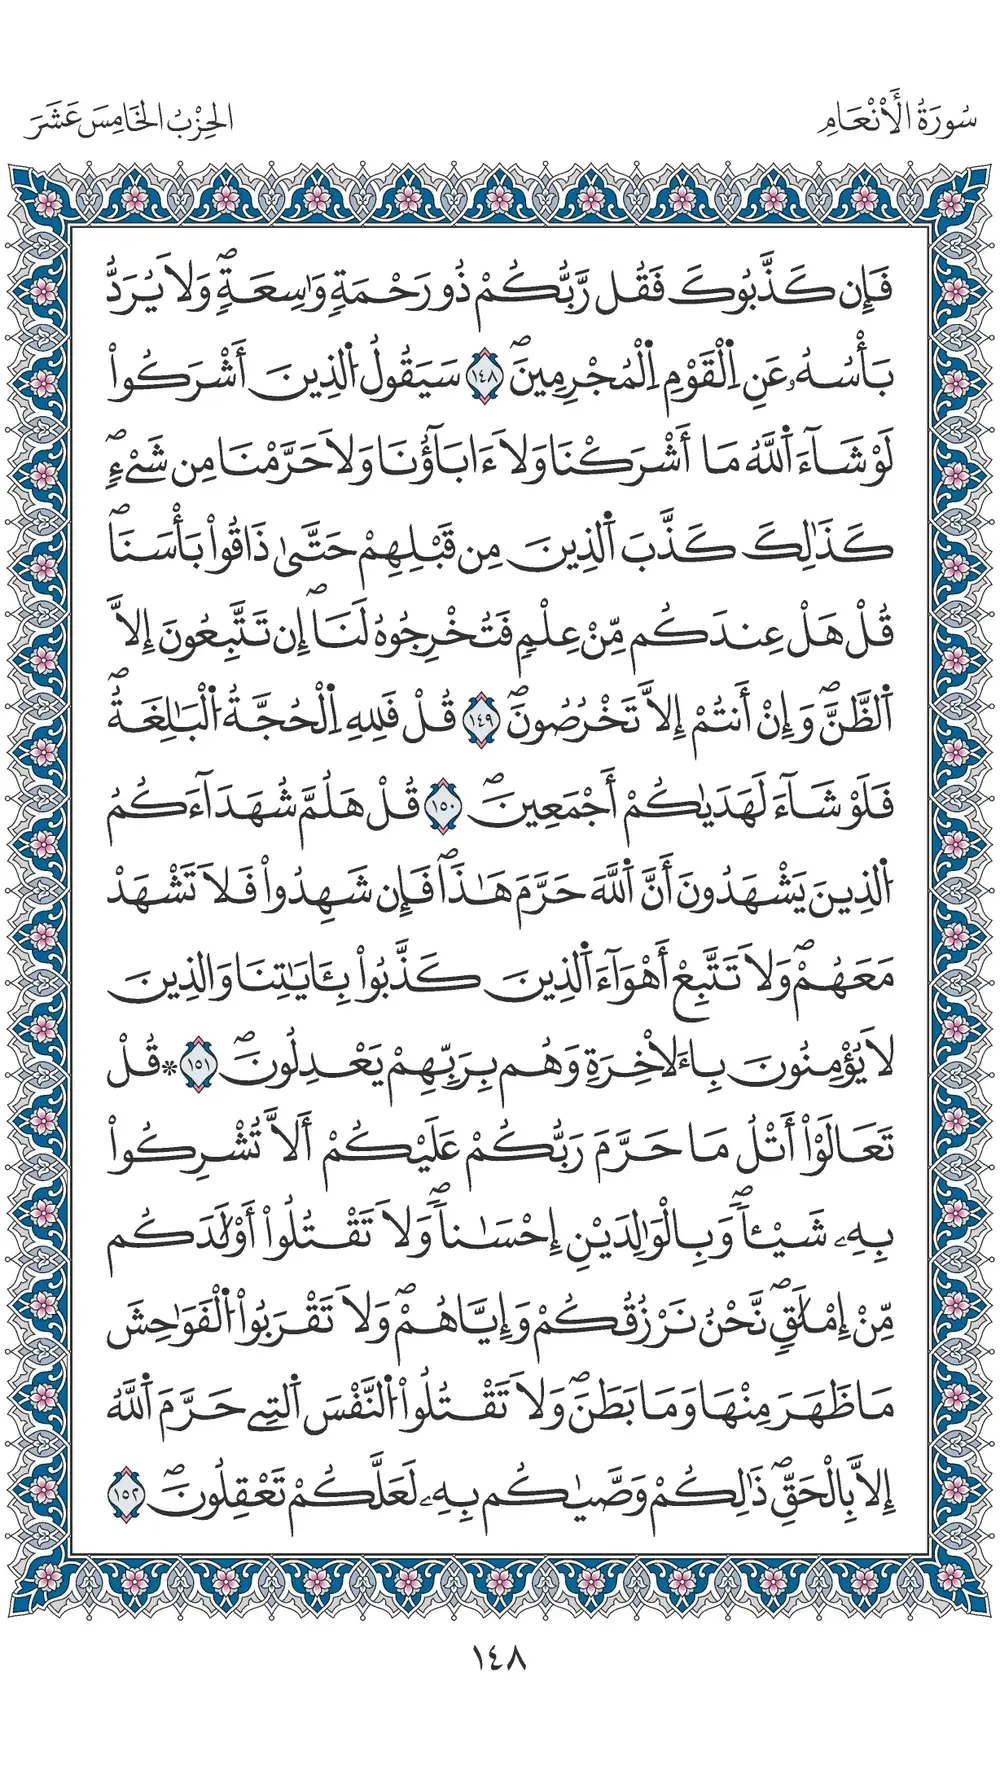 سُورَةُ الْأَنْعَامِ
الحِزْبُ الخَامِسَ عَشَرَ
فَإِن كَذَّبُوكَ فَقُل رَّبُّكُمْ ذُو رَحْمَةٖ وَٰسِعَةٖۖ وَلَا يُرَدُّ
بَأْسُهُۥ عَنِ اِ۬لْقَوْمِ اِ۬لْمُجْرِمِينَۖ ١٤٨ سَيَقُولُ اُ۬لذِينَ أَشْرَكُواْ
لَوْ شَآءَ اَ۬للَّهُ مَا أَشْرَكْنَا وَلَا ءَابَآؤُنَا وَلَا حَرَّمْنَا مِن شَےْءٖۖ
كَذَٰلِكَ كَذَّبَ اَ۬لذِينَ مِن قَبْلِهِمْ حَتَّىٰ ذَاقُواْ بَأْسَنَاۖ
قُلْ هَلْ عِندَكُم مِّنْ عِلْمٖ فَتُخْرِجُوهُ لَنَاۖ إِن تَتَّبِعُونَ إِلَّا
اَ۬لظَّنَّۖ وَإِنْ أَنتُمْ إِلَّا تَخْرُصُونَۖ ١٤٩ قُلْ فَلِلهِ اِ۬لْحُجَّةُ اُ۬لْبَٰلِغَةُۖ
فَلَوْ شَآءَ لَهَدَىٰكُمْ أَجْمَعِينَۖ ١٥٠ قُلْ هَلُمَّ شُهَدَآءَكُمُ
اُ۬لذِينَ يَشْهَدُونَ أَنَّ اَ۬للَّهَ حَرَّمَ هَٰذَاۖ فَإِن شَهِدُواْ فَلَا تَشْهَدْ
مَعَهُمْۖ وَلَا تَتَّبِعْ أَهْوَآءَ اَ۬لذِينَ كَذَّبُواْ بِـَٔايَٰتِنَا وَالذِينَ
لَا يُؤْمِنُونَ بِالَاخِرَةِ وَهُم بِرَبِّهِمْ يَعْدِلُونَۖ ١٥١ ۞قُلْ
تَعَالَوْاْ أَتْلُ مَا حَرَّمَ رَبُّكُمْ عَلَيْكُمْ أَلَّا تُشْرِكُواْ
بِهِۦ شَيْـٔاٗۖ وَبِالْوَٰلِدَيْنِ إِحْسَٰناٗۖ وَلَا تَقْتُلُواْ أَوْلَٰدَكُم
مِّنْ إِمْلَٰقٖۖ نَّحْنُ نَرْزُقُكُمْ وَإِيَّاهُمْۖ وَلَا تَقْرَبُواْ اُ۬لْفَوَٰحِشَ
مَا ظَهَرَ مِنْهَا وَمَا بَطَنَۖ وَلَا تَقْتُلُواْ اُ۬لنَّفْسَ اَ۬لتِے حَرَّمَ اَ۬للَّهُ
إِلَّا بِالْحَقِّۖ ذَٰلِكُمْ وَصَّىٰكُم بِهِۦ لَعَلَّكُمْ تَعْقِلُونَۖ ١٥٢
١٤٨